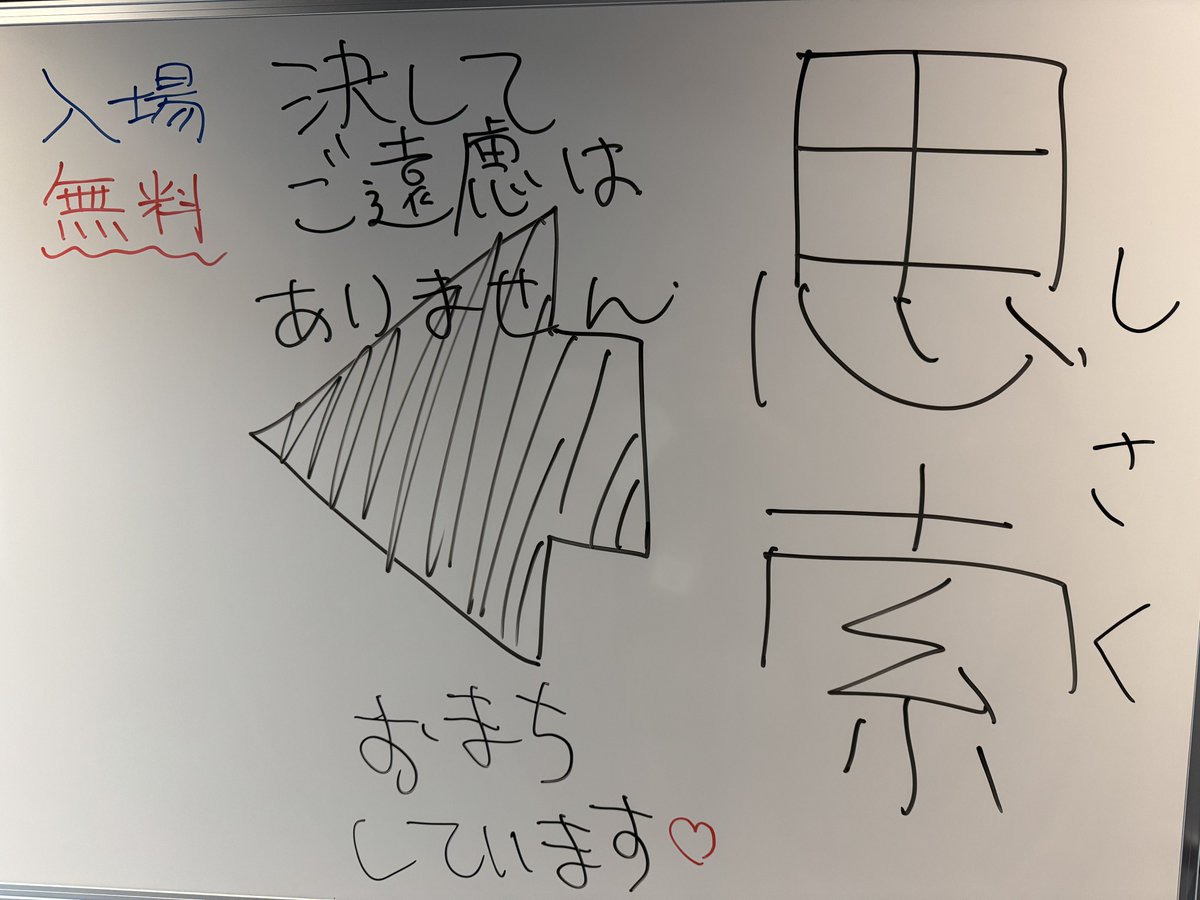 思索
しさく
決して
ご遠慮は
ありません
入場
無料
おまち
しています♡